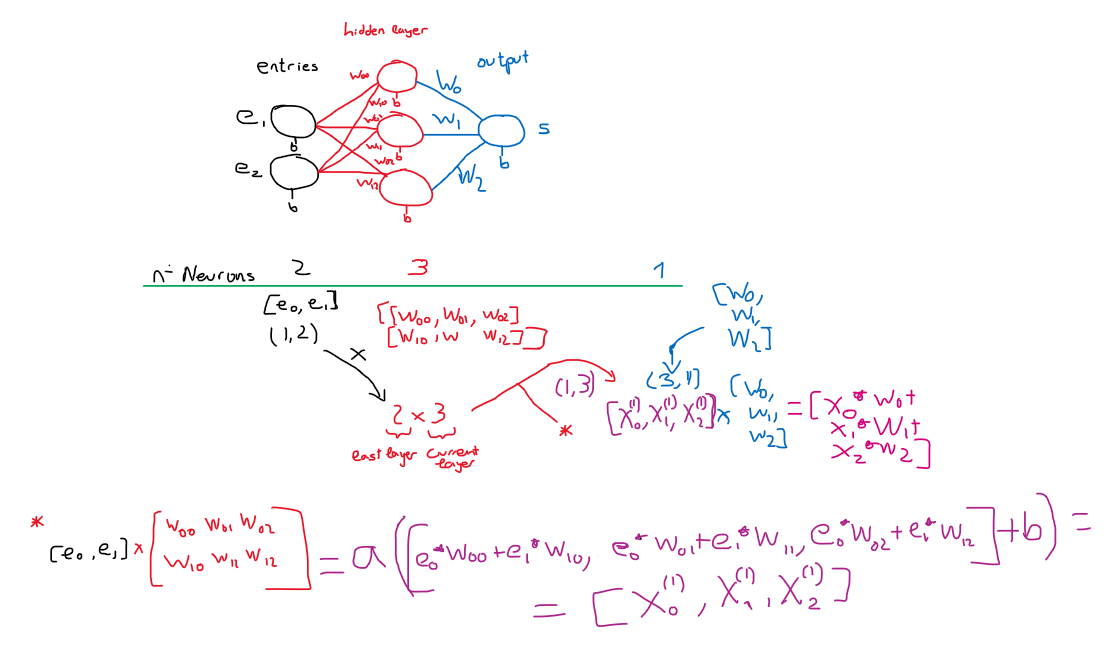 hidden layer
entries
output
w00
W0
w10
b
e1
w01
W1
s
b
w11
b
b
e2
w02
W2
w12
b
b
n° Neurons 2 3 1
[e0, e1]
(1,2)
[[w00, w01, w02]
[w10, w w12]]
[w0,
w1,
w2]
x
2 x 3
last layer current layer
*
(1,3)
(3,1)
[x0^(1), x1^(1), x2^(1)] x [w0, w1, w2] = [x0*w0+
x1*w1+
x2*w2]
*
[e0, e1] x [w00 w01 w02
w10 w11 w12] = a([e0*w00+e1*w10, e0*w01+e1*w11, e0*w02+e1*w12]+b) =
= [x0^(1), x1^(1), x2^(1)]